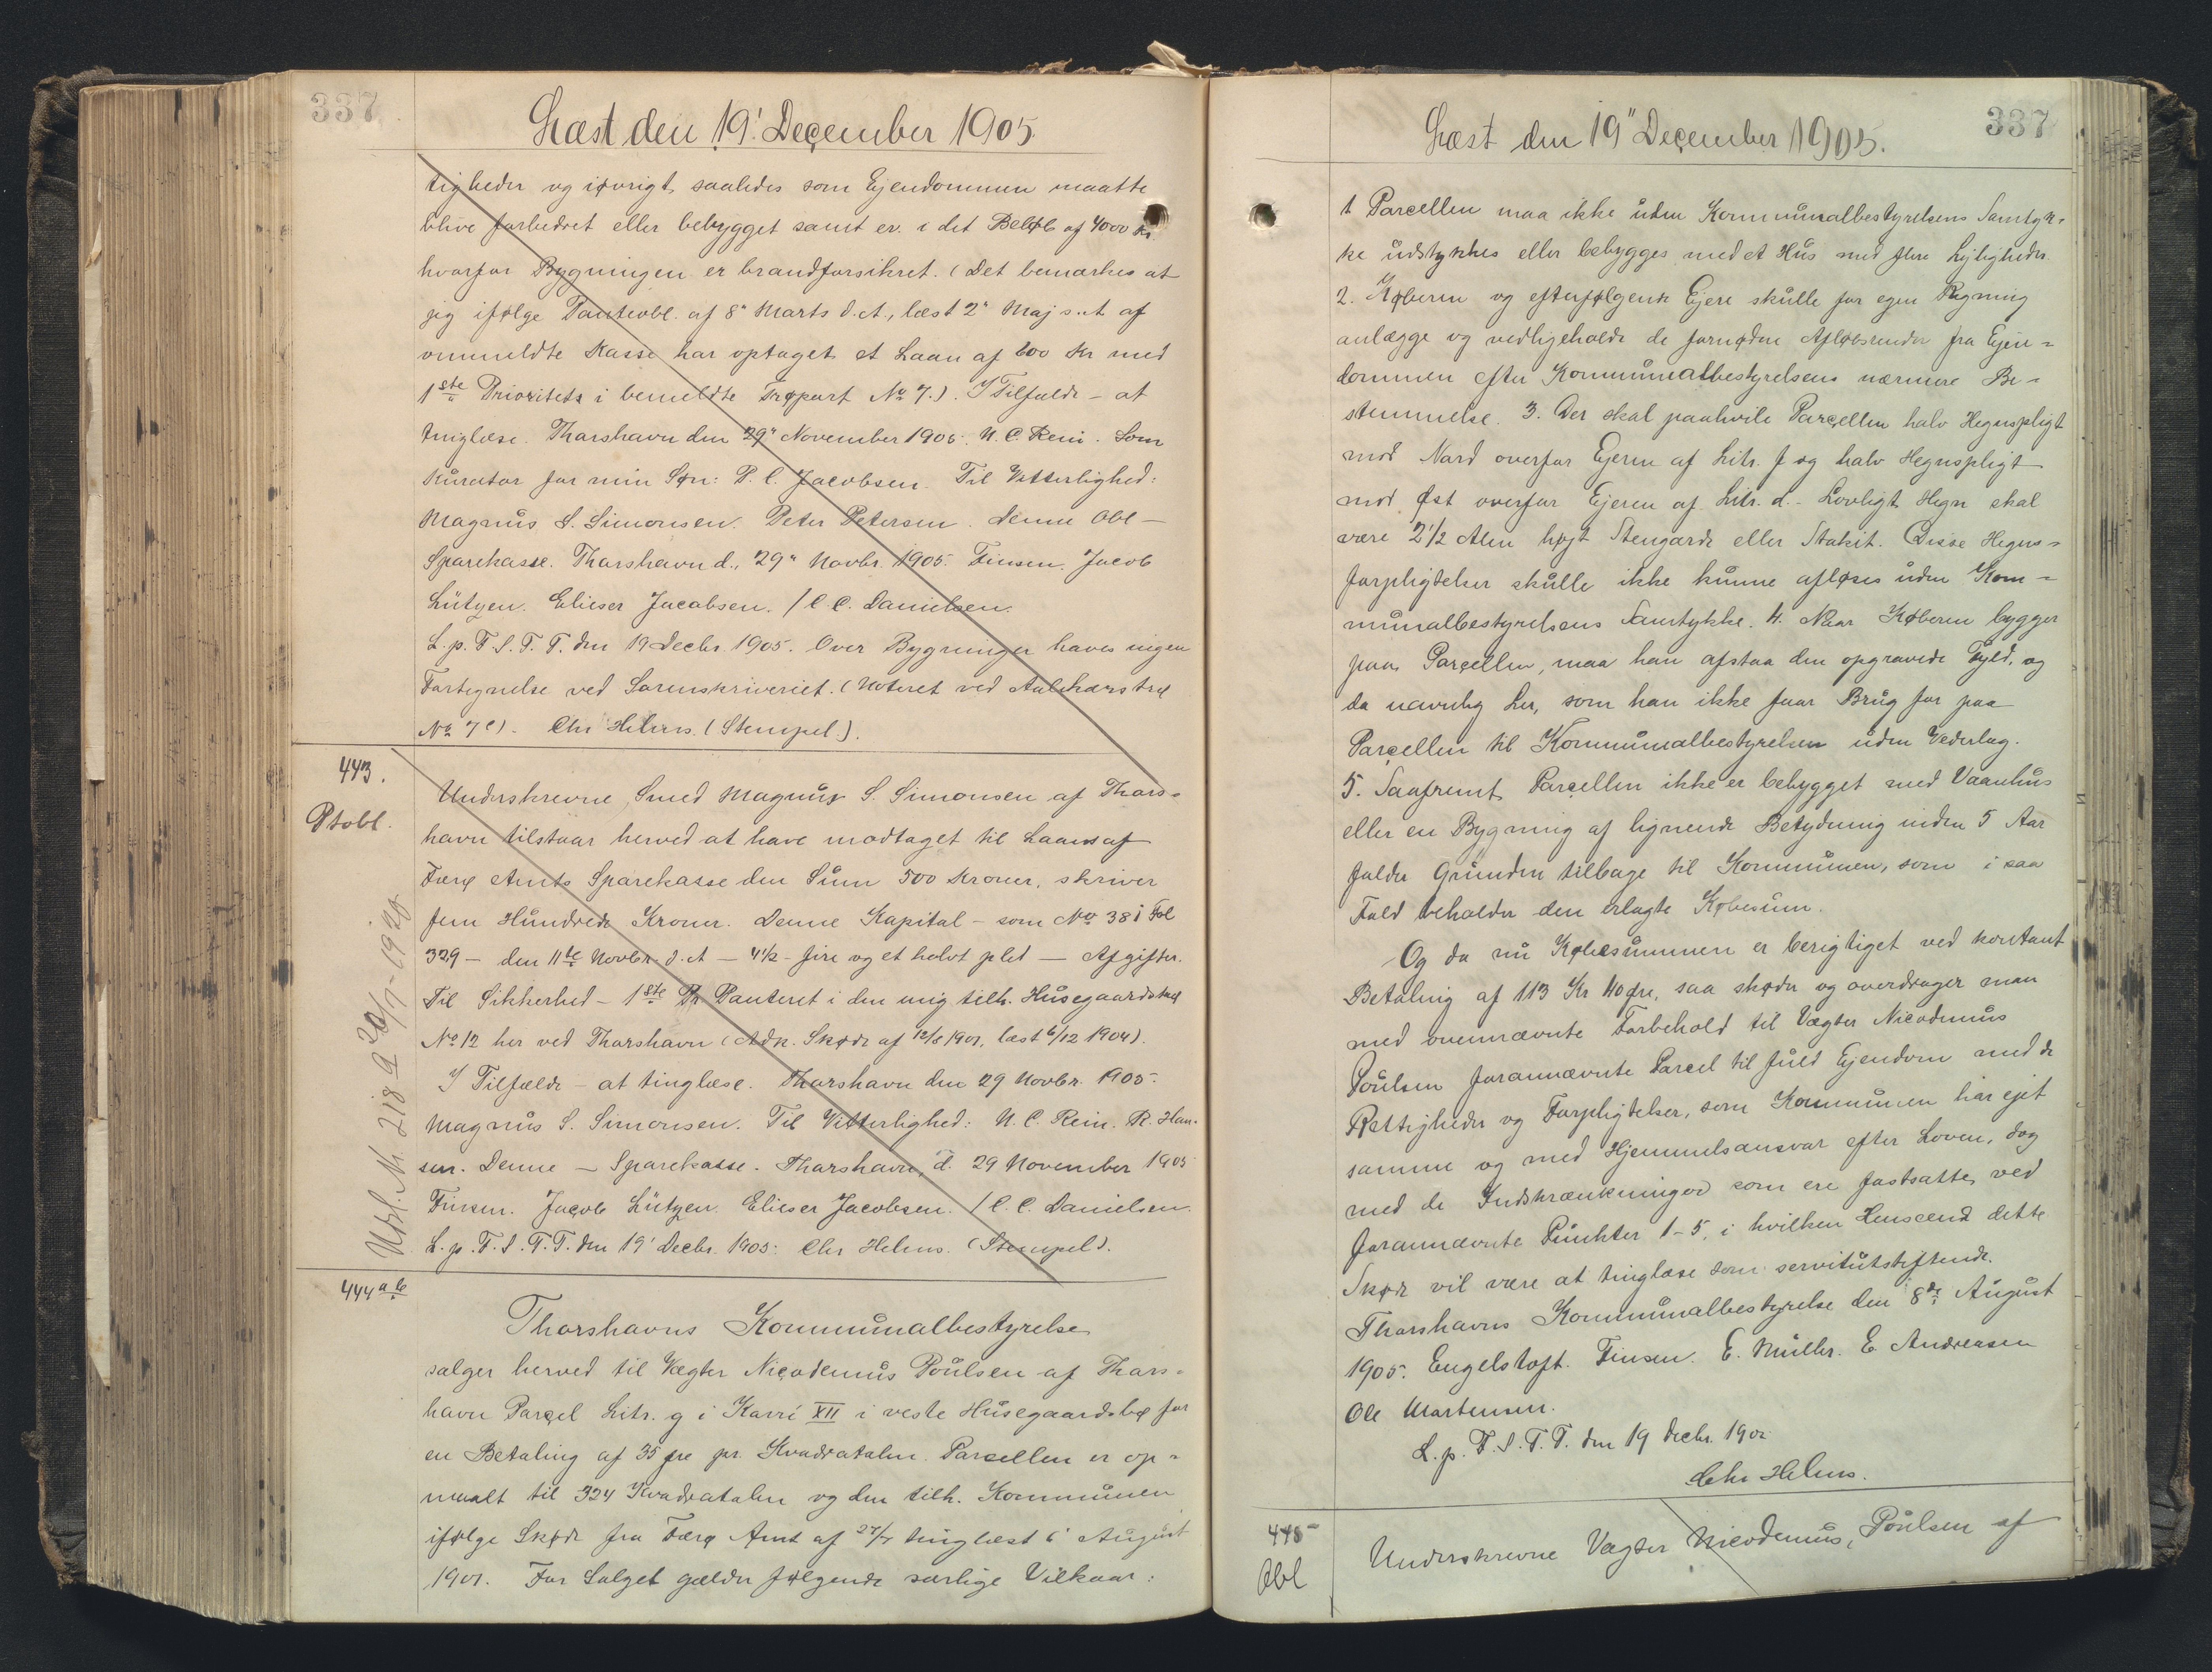 337
Læst den 19' December 1905
tigheder og iøvrigt, saaledes som Ejendommen maatte
blive forbedret eller bebygget samt ev. i det Beløb af 4000 Kr
hvorfor Bygningen er brandforsikret. (Det bemærkes at
jeg ifølge Panteobl. af 8" Marts d.A., læst 2" Maj s.A. af
ommeldte Kasse har optaget et Laan af 600 Kr med
1ste Prioritets i bemeldte No 7.). I Tilfælde - at
tinglæse. Thorshavn den 29" November 1905. N. C. Rein. Som
Kurator for min Søn: P. C. Jacobsen. Til Vitterlighed:
Magnus S. Simonsen. Peter Petersen. Denne Obl -
Sparekasse. Thorshavn d., 29" Novbr. 1905. Finsen. Jacob
Lützen. Elieser Jacobsen. / C. C. Danielsen.
L. p. F. S. T. T. den 19 Decbr. 1905. Over Bygninger haves ingen
Fortegnelse ved Sorenskriveriet. (Noteret ved
No 7c). Chr Helms. (Stempel).
443.
Ptobl.
Underskrevne Smed Magnus S. Simonsen af Thors=
havn tilstaar herved at have modtaget til Laans af
Færø Amts Sparekasse den Sum 500 Kroner, skriver
fem Hundrede Kroner. Denne Kapital - som No 381 Fol
329 - den 11te Novbr. d.A - 4½ - fire og et halvt pCt - Afgifter.
Til Sikkerhed - 1ste Pr Panteret i den mig tilh. Husegaardstrø
No 12 her ved Thorshavn (Adk. Skøde af 12/8 1901, læst 6/12 1904).
I Tilfælde - at tinglæse. Thorshavn den 29 Novbr. 1905.
Magnus S. Simonsen. Til Vitterlighed: N. C. Rein. R. Han-
sen. Denne - Sparekasse. Thorshavn, d. 29 November 1905
Finsen. Jacob Lützen. Elieser Jacobsen. / C. C. Danielsen.
L. p. F. S. T. T. den 19' Decbr. 1905. Chr Helms. (Stempel).
Udsl. Nr. 218
444 a b
Thorshavns Kommunalbestyrelse
sælger herved til Vægter Nicodemus Poulsen af Thors=
havn Parcel Litr. g i Karré XII i veste Husegaardsbø for
en Betaling af 35 Øre pr. Kvadratalen. Parcellen er op=
maalt til 324 Kvadratalen og den tilh. Kommunen
ifølge Skøde fra Færø Amt af 27/7 tinglæst 6' August
1901. For Salget gælder følgende særlige Vilkaar:
337
Læst den 19" December 1905.
1 Parcellen maa ikke uden Kommunalbestyrelsens Samtyk=
ke udstykkes eller bebygges med et Hus med flere Lejligheder.
2. Køberen og efterfølgende Ejere skulle for egen Regning
anlægge og vedligeholde de fornødne Afløbsrender fra Ejen=
dommen efter Kommunalbestyrelsens nærmere Be=
stemmelse. 3. Der skal paahvile Parcellen halv Hegnspligt
mod Nord overfor Ejeren af Litr. f og halv Hegnspligt
mod Øst overfor Ejeren af Litr. d. - Lovligt Hegn skal
være 2½ Alen højt Stengærde eller Stakit. Disse Hegns=
forpligtelser skulle ikke kunne afløses uden Kom=
munalbestyrelsens Samtykke. 4. Naar Køberen bygger
paa Parcellen, maa han afstaa den opgravede Fyld, og
da navnlig Ler, som han ikke faar Brug for paa
Parcellen til Kommunalbestyrelsen uden Vederlag.
5. Saafremt Parcellen ikke er bebygget med Vaanhus
eller en Bygning af lignende Betydning inden 5 Aar
falder Grunden tilbage til Kommunen, som i saa
Fald beholder den erlagte Købesum.
Og da nu Købesummen er berigtiget ved kontant
Betaling af 113 Kr 40 Øre, saa skøder og overdrager man
med ovennævnte Forbehold til Vægter Nicodemus
Poulsen forannævnte Parcel til fuld Ejendom med de
Rettigheder og Forpligtelser, som Kommunen har ejet
samme og med Hjemmelsansvar efter Loven, dog
med de Indskrænkninger som ere fastsatte ved
forannævnte Punkter 1-5, i hvilken Henseend dette
Skøde vil være at tinglæse som servitutstiftende.
Thorshavns Kommunalbestyrelse den 8de August
1905. Engelstoft. Finsen. E. Müller. E. Andreasen
Ole Mortensen.
L. p. F. S. T. T. den 19 Decbr. 1905
Chr Helms.
445
Obl
Underskrevne Vægter Nicodemus Poulsen af